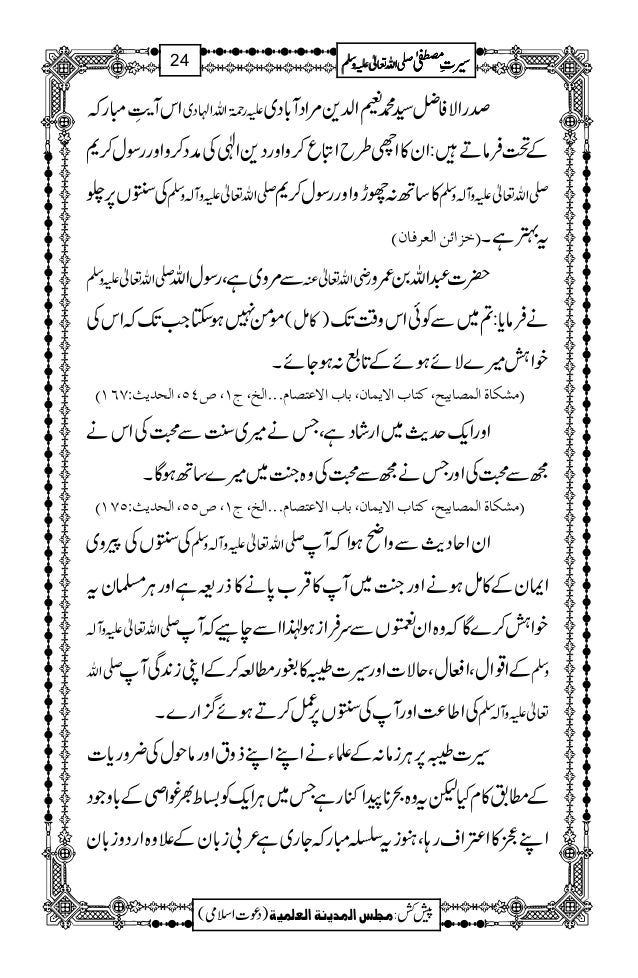 سیرتِ مصطفیٰ صلی اللہ تعالیٰ علیہ وسلم
24
صدر الافاضل سید محمد نعیم الدین مراد آبادی علیہ رحمۃ اللہ الہادی اس آیتِ مبارکہ
کے تحت فرماتے ہیں: ان کا اچھی طرح اتباع کرو اور دین الٰہی کی مدد کرو اور رسول کریم
صلی اللہ تعالیٰ علیہ وآلہ وسلم کا ساتھ نہ چھوڑو اور رسول کریم صلی اللہ تعالیٰ علیہ وآلہ وسلم کی سنتوں پر چلو
یہ بہتر ہے۔ (خزائن العرفان)
حضرت عبداللہ بن عمرو رضی اللہ تعالیٰ عنہ سے مروی ہے، رسول اللہ صلی اللہ تعالیٰ علیہ وسلم
نے فرمایا: تم میں سے کوئی اس وقت تک (کامل) مومن نہیں ہو سکتا جب تک کہ اس کی
خواہش میرے لائے ہوئے کے تابع نہ ہو جائے۔
(مشكاة المصابيح، كتاب الايمان، باب الاعتصام...الخ، ج١، ص٥٤، الحديث:١٦٧)
اور ایک حدیث میں ارشاد ہے، جس نے میری سنت سے محبت کی اس نے
مجھ سے محبت کی اور جس نے مجھ سے محبت کی وہ جنت میں میرے ساتھ ہوگا۔
(مشكاة المصابيح، كتاب الايمان، باب الاعتصام...الخ، ج١، ص٥٥، الحديث:١٧٥)
ان احادیث سے واضح ہوا کہ آپ صلی اللہ تعالیٰ علیہ وآلہ وسلم کی سنتوں کی پیروی
ایمان کے کامل ہونے اور جنت میں آپ کا قرب پانے کا ذریعہ ہے اور ہر مسلمان یہ
خواہش کرے گا کہ وہ ان نعمتوں سے سرفراز ہو لہٰذا اسے چاہیے کہ آپ صلی اللہ تعالیٰ علیہ وآلہ
وسلم کے اقوال، افعال، حالات اور سیرت طیبہ کا بغور مطالعہ کر کے اپنی زندگی آپ صلی اللہ
تعالیٰ علیہ وآلہ وسلم کی اطاعت اور آپ کی سنتوں پر عمل کرتے ہوئے گزارے۔
سیرت طیبہ پر ہر زمانہ کے علماء نے اپنے اپنے ذوق اور ماحول کی ضروریات
کے مطابق کام کیا لیکن یہ وہ بحر ناپیدا کنار ہے جس میں ہر ایک کو بساط بھر غواصی کے باوجود
اپنے عجز کا اعتراف رہا، ہنوز یہ سلسلہ مبارکہ جاری ہے عربی زبان کے علاوہ اردو زبان
پیش کش: مجلس المدینۃ العلمیۃ (دعوت اسلامی)